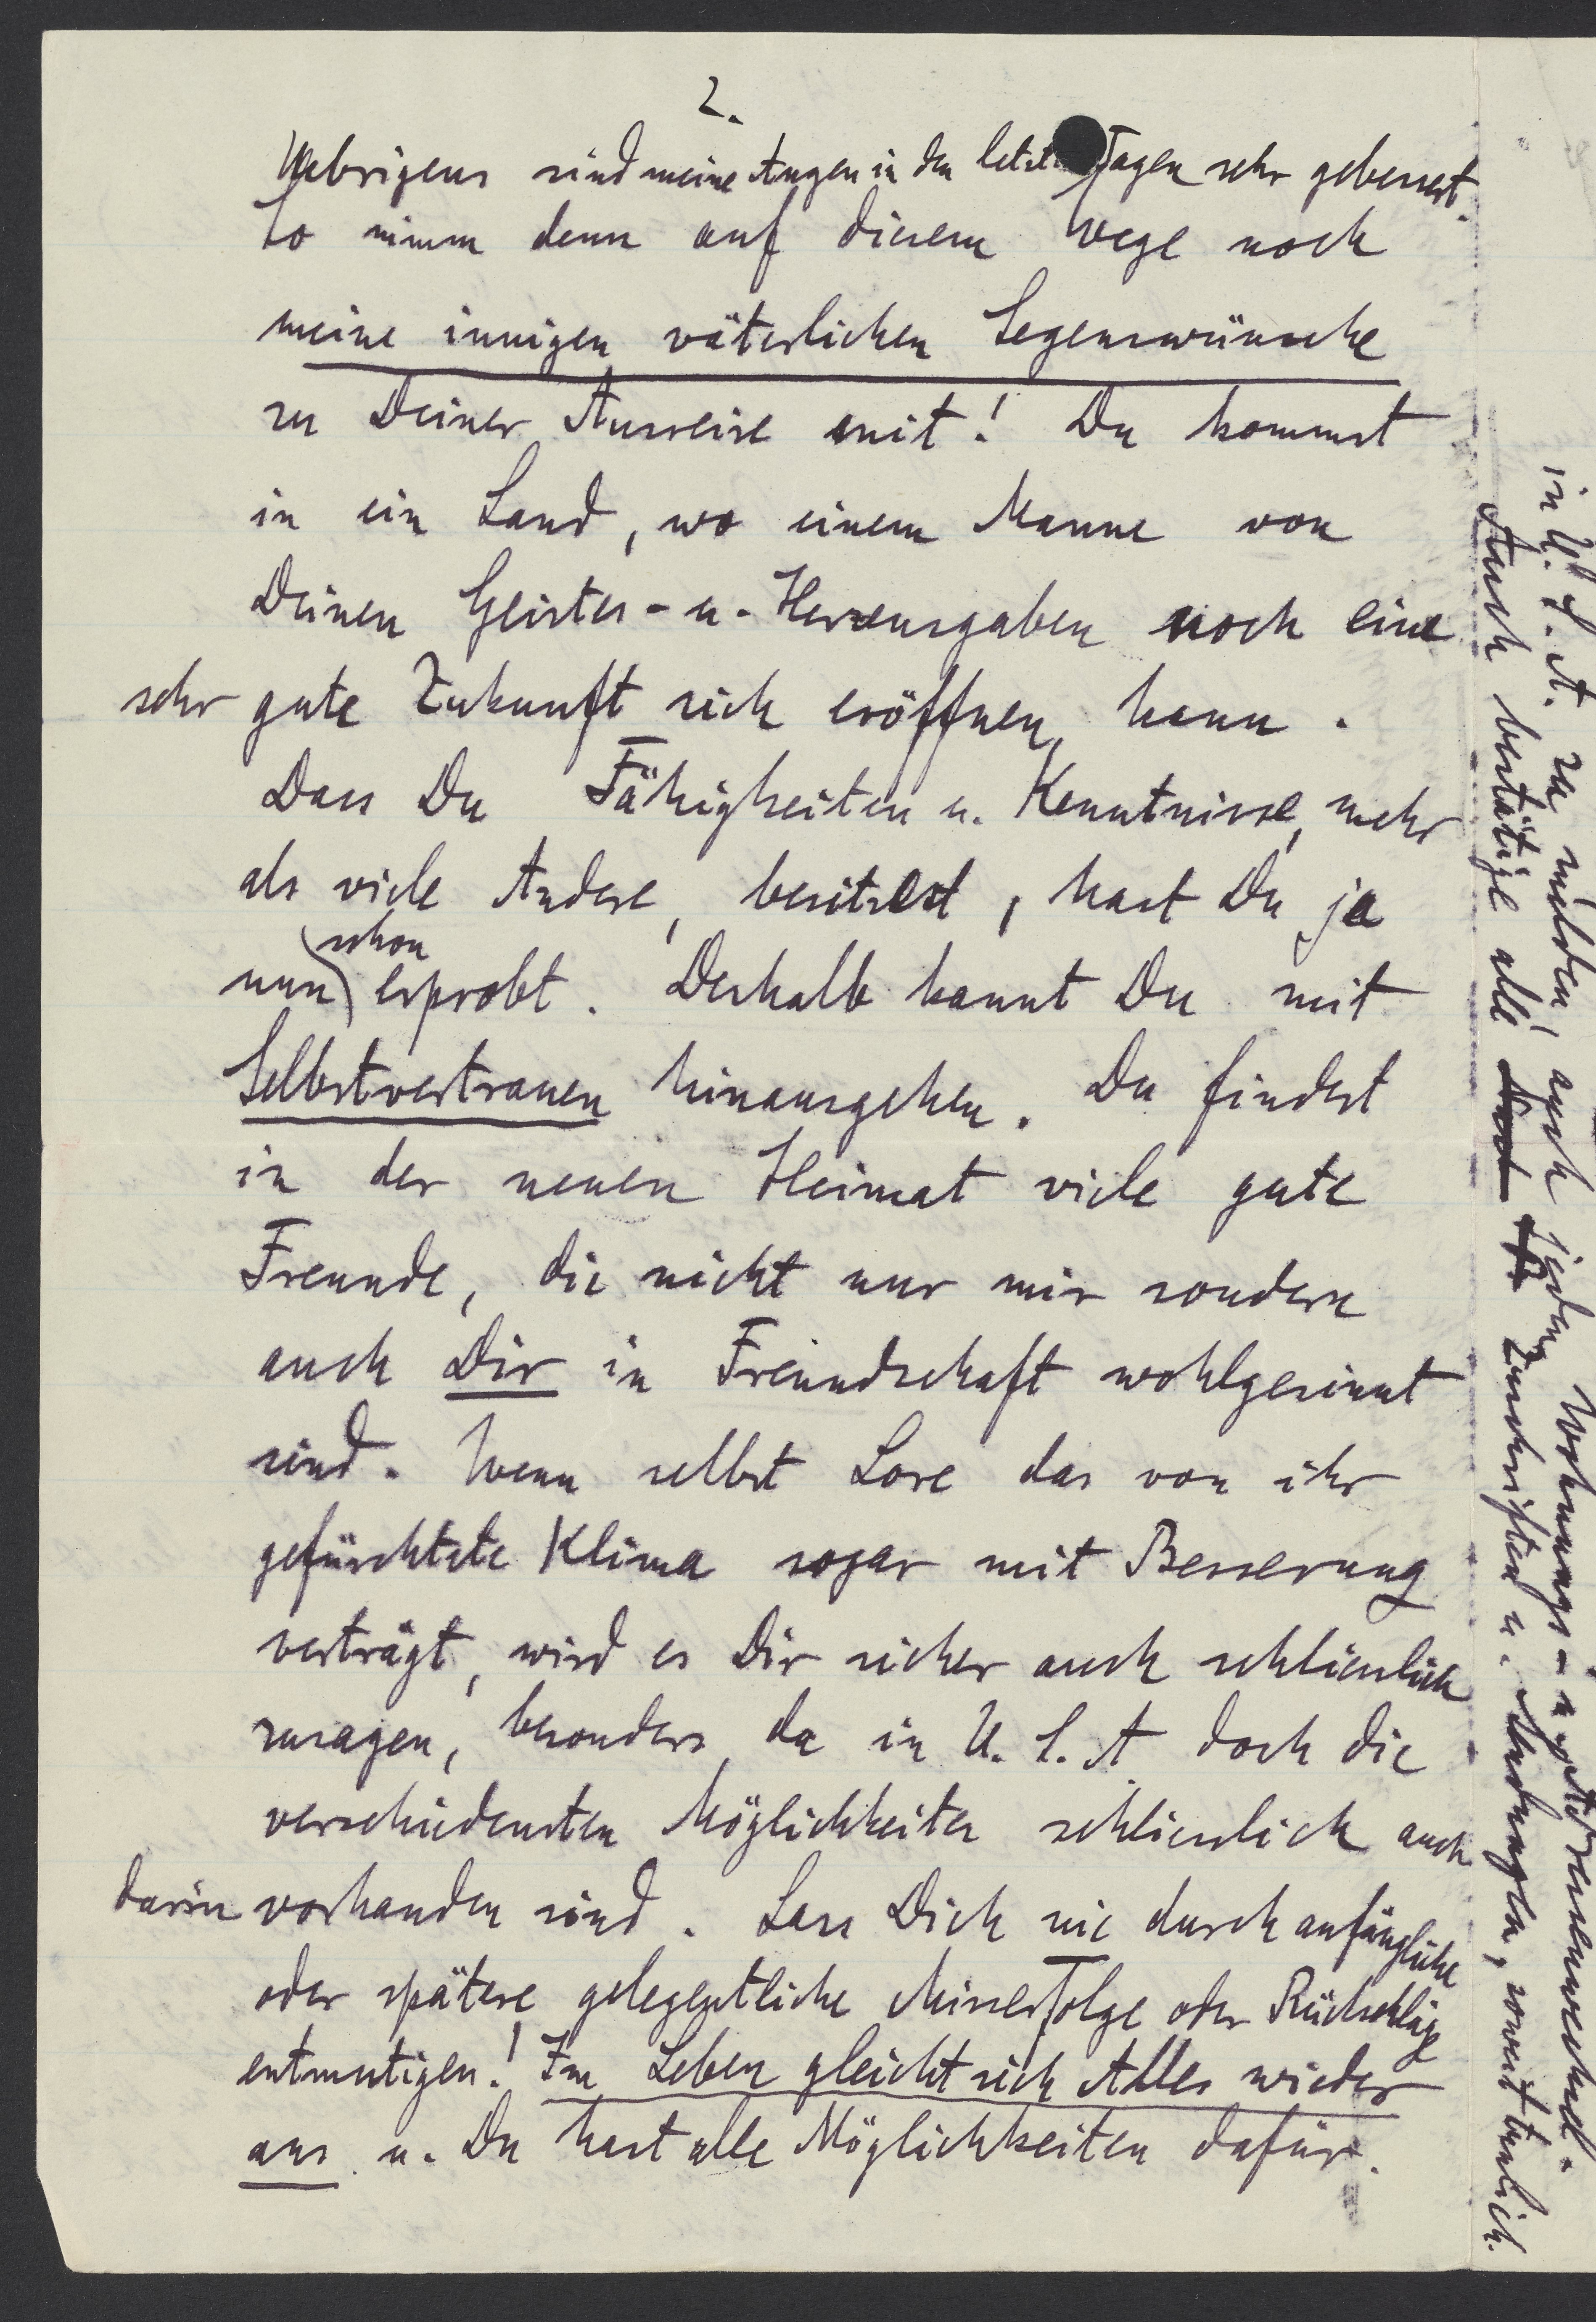 2.
Uebrigens sind meine Augen in den letzten Tagen sehr gebessert.
So nimm denn auf diesem Wege noch
meine innigen väterlichen Segenswünsche
zu Deiner Ausreise mit! Du kommst
in ein Land, wo einem Manne von
Deinen Geistes- u. Herzensgaben noch eine
sehr gute Zukunft sich eröffnen kann.
Dass Du Fähigkeiten u. Kenntnisse, mehr
als viele Andere, besitzest, hast Du ja
nun schon erprobt. Deshalb kannst Du mit
Selbstvertrauen hinausgehen. Du findest
in der neuen Heimat viele gute
Freunde, die nicht nur mir sondern
auch Dir in Freundschaft wohlgesinnt
sind. Wenn selbst Lore das von ihr
gefürchtete Klima sogar mit Besserung
verträgt, wird es Dir sicher auch schliesslich
zusagen, besonders, da in U.S.A doch die
verschiedensten Möglichkeiten schliesslich auch
darin vorhanden sind. Lass Dich nie durch anfängliche
oder spätere gelegentliche Misserfolge oder Rückschläge
entmutigen! Im Leben gleicht sich Alles wieder
aus u. Du hast alle Möglichkeiten dafür.
in U.S.A. zu melden, auch jeden Wohnungs- u. Adressenwechsel.
Auch bestätige alle Zuschriften u. Meldungen, soweit tunlich.